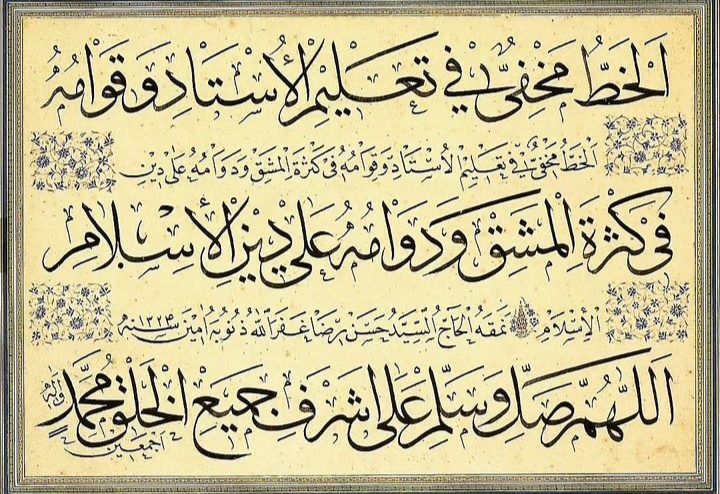 اَلْخَطُّ مَخْفِيٌّ فِي تَعْلِيْمِ الْأُسْتَاذِ وَقِوَامُهُ
اَلْخَطُّ مَخْفِيٌّ فِي تَعْلِيْمِ الْأُسْتَاذِ وَقِوَامُهُ فِي كَثْرَةِ الْمَشْقِ وَدَوَامُهُ عَلَى دِيْنِ
فِي كَثْرَةِ الْمَشْقِ وَدَوَامُهُ عَلَى دِيْنِ الْإِسْلَامِ
الْإِسْلَامِ نمقه الحاج السيد حسن رضا غَفَرَ اللّٰهُ ذُنُوبَهُ اٰمِيْن سنه ١٣٢٤
اَللّٰهُمَّ صَلِّ وَسَلِّمْ عَلَى اَشْرَفِ جَمِيْعِ الْخَلْقِ مُحَمَّدٍ وآله
اجمعين